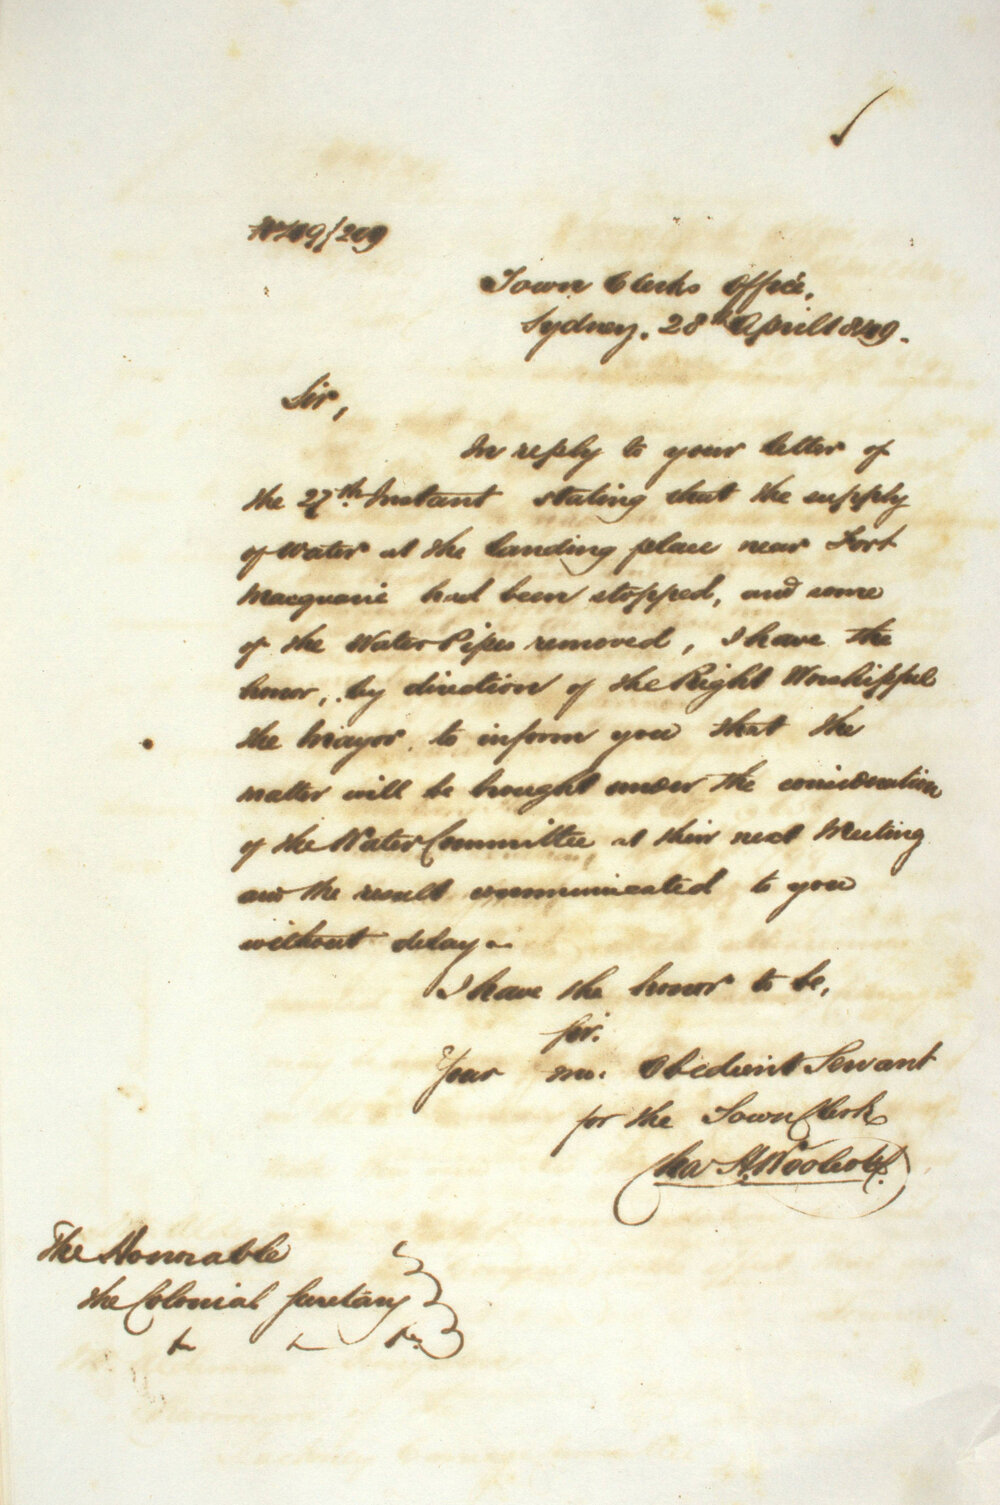 49/209
Town Clerks Office,
Sydney, 28th April 1849.
Sir,
In reply to your letter of
the 27th Instant stating that the supply
of Water at the landing place near Fort
Macquarie had been stopped, and some
of the Water Pipes removed, I have the
honor, by direction of the Right Worshipful
the Mayor, to inform you that the
matter will be brought under the consideration
of the Water Committee at their next Meeting
and the result communicated to you
without delay.
I have the honor to be,
Sir.
Your mo. Obedient Servant
for the Town Clerk
Chas H. Woolcott
The Honorable
the Colonial Secretary